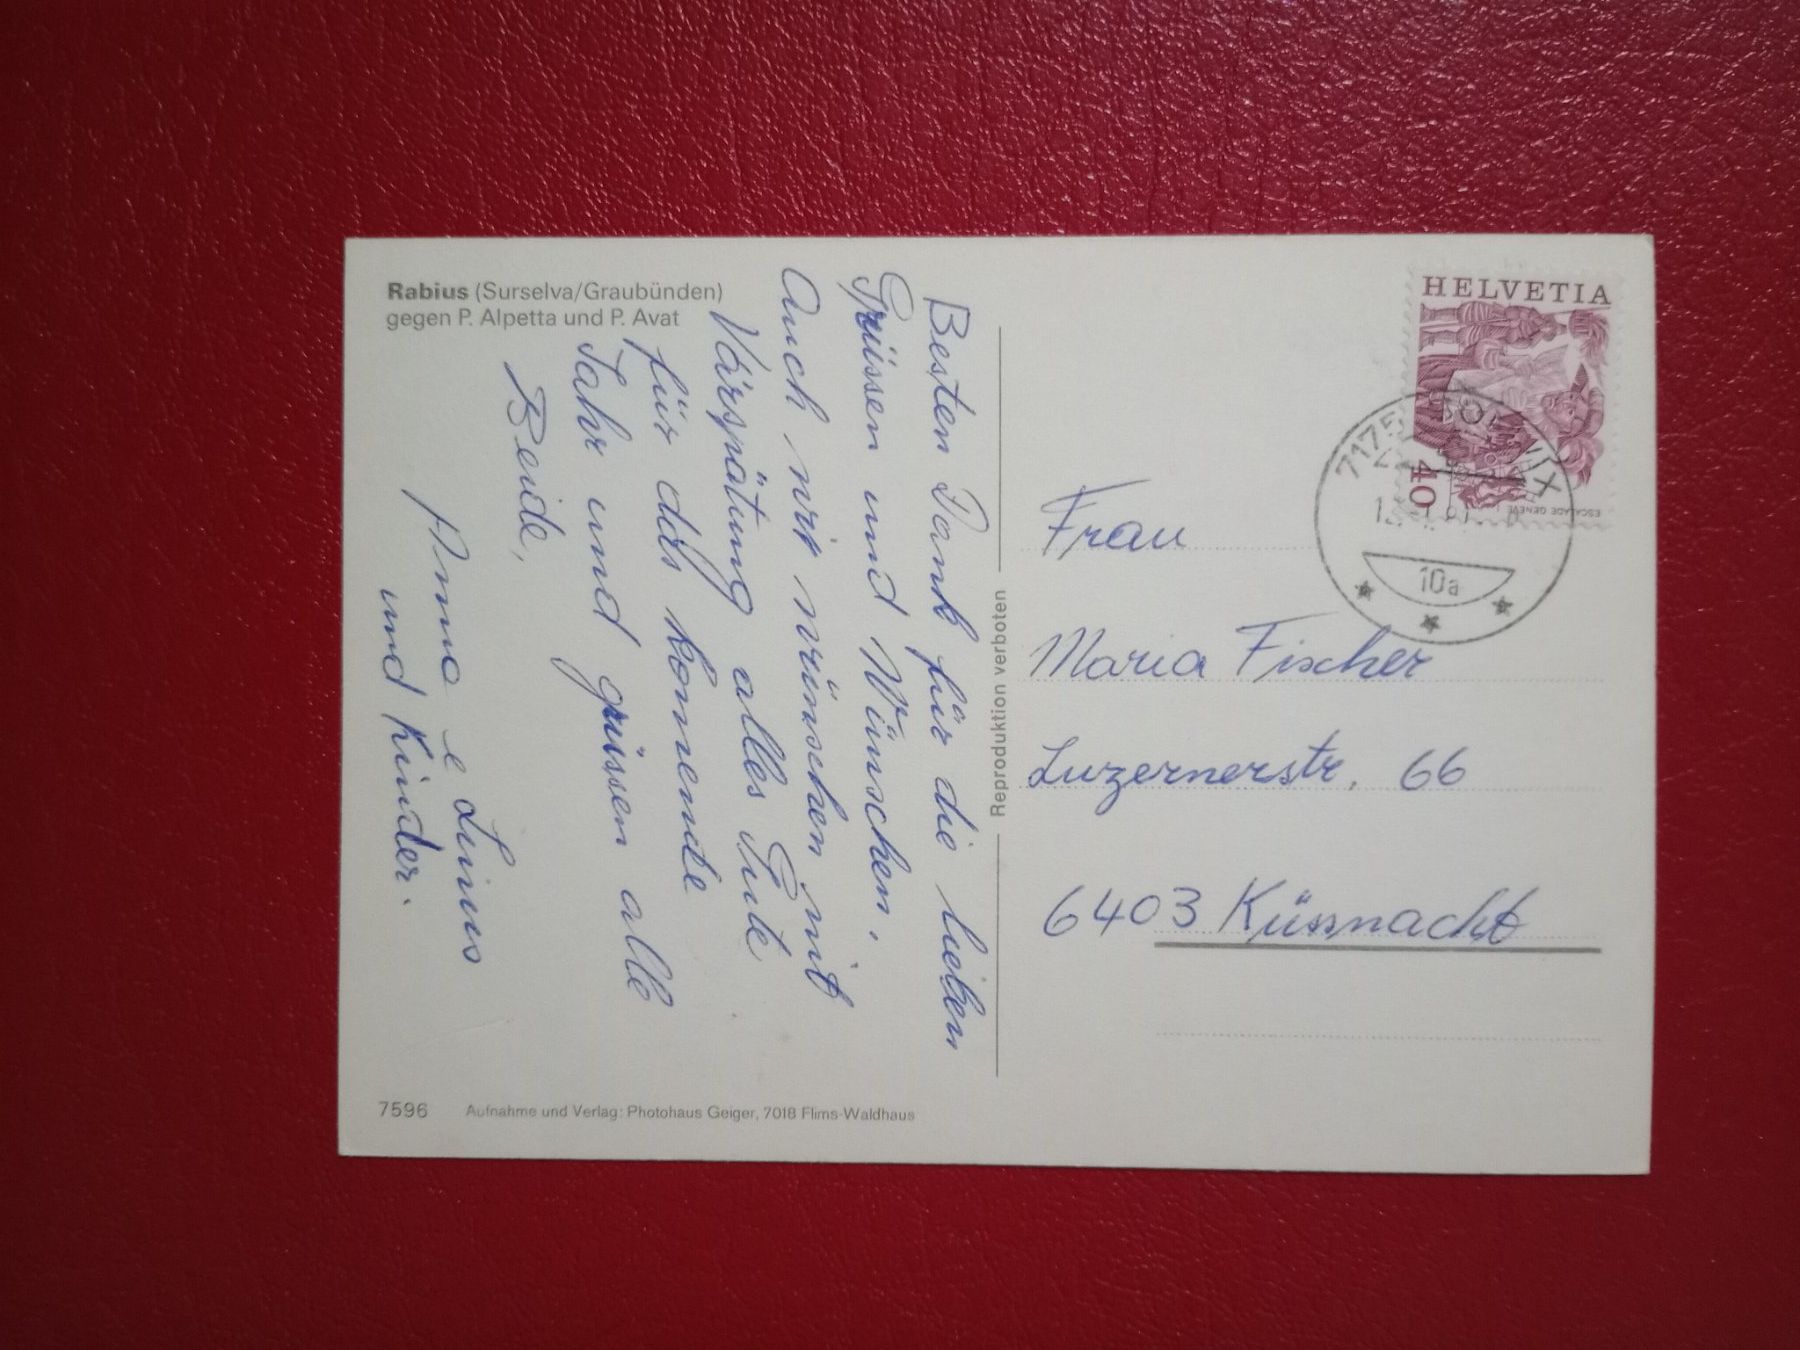 Rabius (Surselva/Graubünden)
gegen P. Alpetta und P. Avat
Besten Dank für die lieben
Grüssen und Wünschen.
Auch wir wünschen mit
Värspätung alles Gute
für das komende
Jahr und grüssen alle
Beide,
Anna e Linus
und Kinder.
7596 Aufnahme und Verlag: Photohaus Geiger, 7018 Flims-Waldhaus
Reproduktion verboten
HELVETIA
40
ESCALADE GENEVE
7175
10a
Frau
Maria Fischer
Luzernerstr. 66
6403 Küssnacht